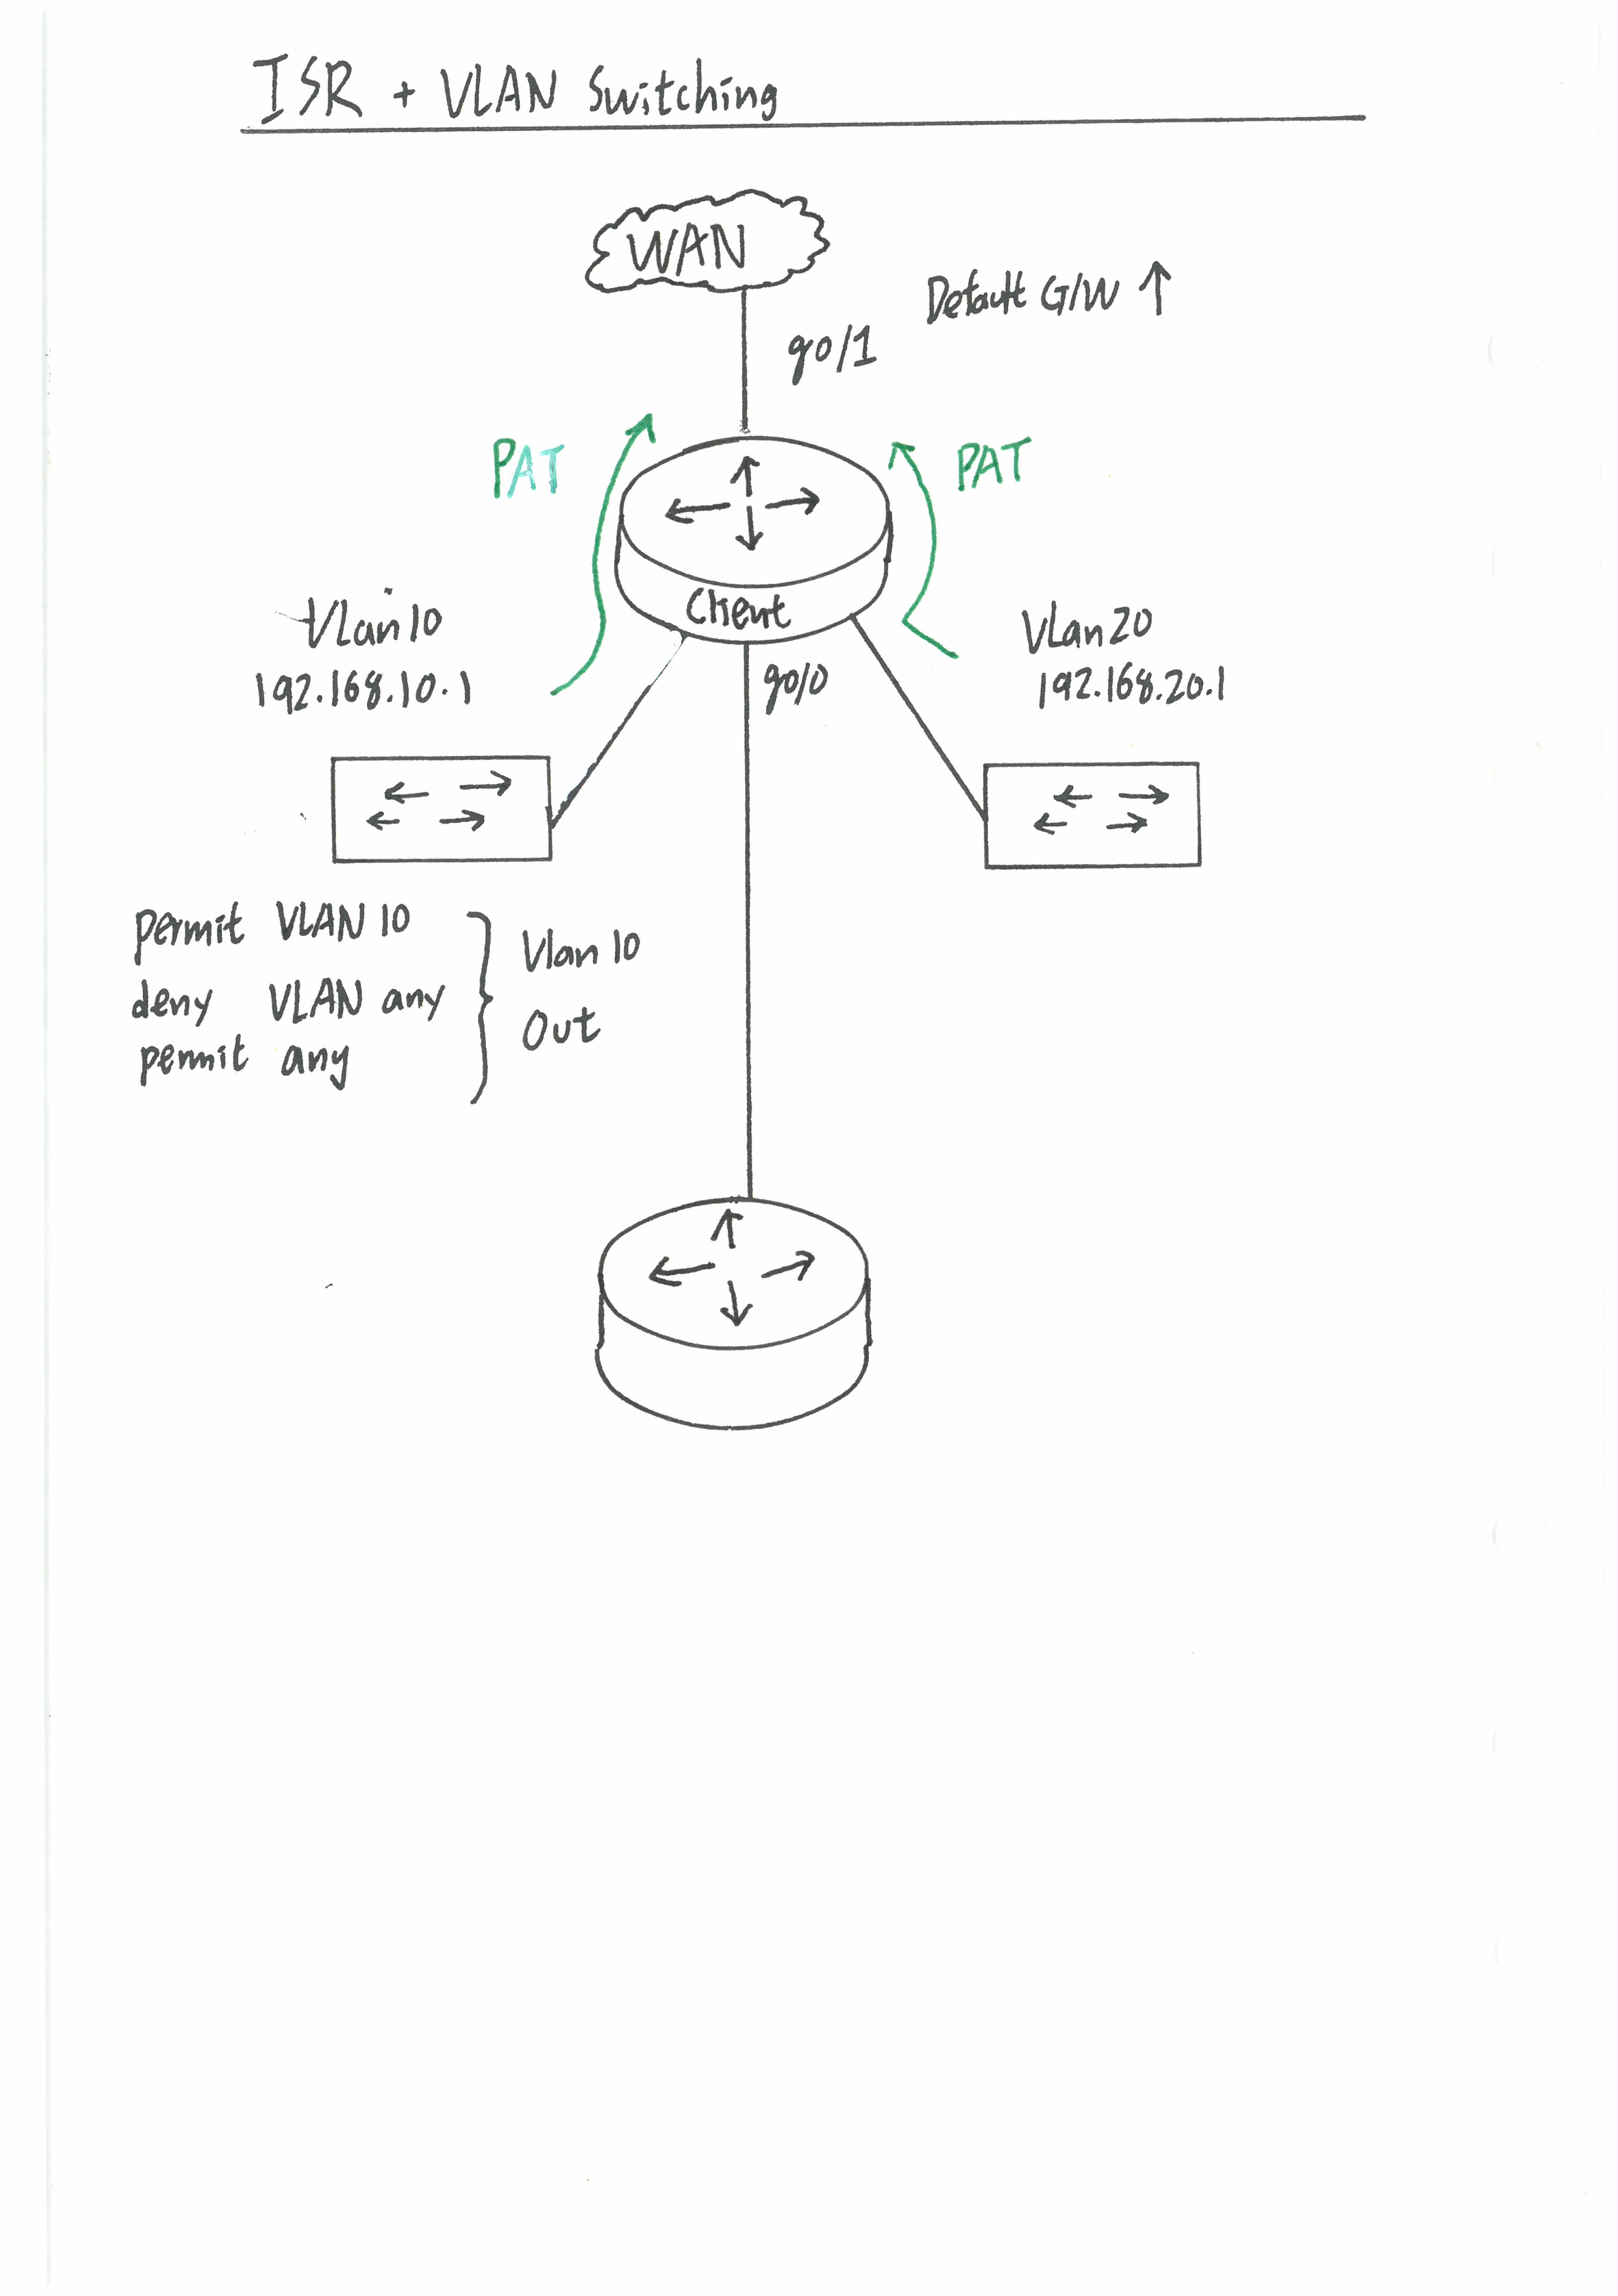 ISR + VLAN Switching
WAN
Default G/W ↑
g0/1
PAT
PAT
Client
Vlan 10
192.168.10.1
g0/0
Vlan 20
192.168.20.1
permit VLAN 10
deny VLAN any
permit any
Vlan 10
Out